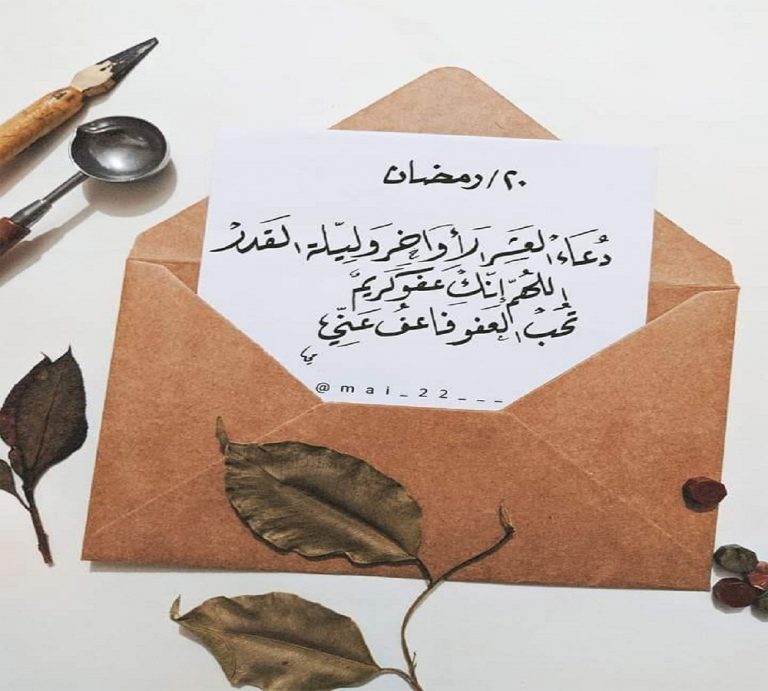 ٢٠/رمضان
دُعَاء العَشِر الأَوَاخِر وَلِيّلة القَدرْ
اللهُمّ إنّكْ عَفوَ كَريمٌ
تُحُبْ العَفو فاعفُ عَنِّي
مي
@mai_22___